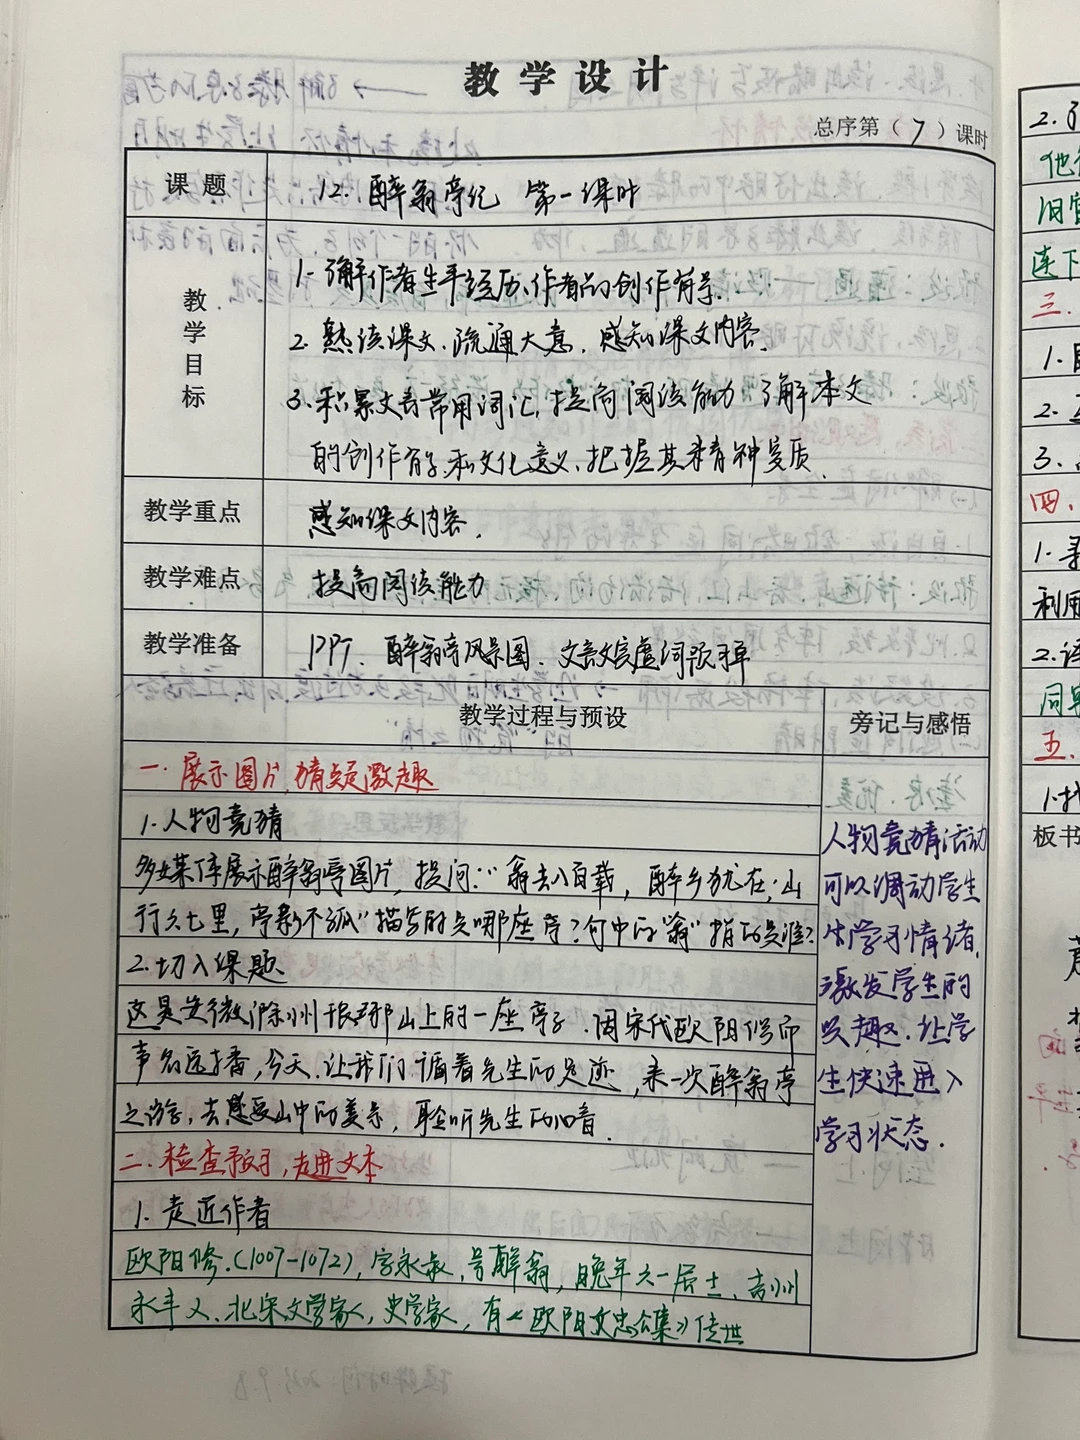 教学设计
总序第（7）课时
课题
12.醉翁亭记 第一课时
教学目标
1.了解作者生平经历、作品的创作背景.
2.熟读课文,疏通大意,感知课文内容.
3.积累文言常用词汇,提高阅读能力 了解本文
的创作背景和文化意义,把握其精神
教学重点
感知课文内容.
教学难点
提高阅读能力
教学准备
PPT、醉翁亭风景图、文言文实虚词预习单
教学过程与预设
旁记与感悟
一.展示图片,猜疑激趣
1.人物竞猜
多媒体展示醉翁亭图片,提问:“翁去八百载,醉乡犹在;山
行六七里,亭影不孤”描写的是哪座亭?句中的“翁”指的是谁?
2.切入课题
这是安徽滁州琅琊山上的一座亭子.因宋代欧阳修而
声名远播,今天.让我们循着先生的足迹,来一次醉翁亭
之游,去感受山中的美景,聆听先生的心音.
二.检查预习,走进文本
1.走近作者
欧阳修.(1007-1072),字永叔,号醉翁,晚年六一居士、吉州
永丰人、北宋文学家,史学家,有《欧阳文忠公集》传世
人物竞猜活动
可以调动学生
的学习情绪,
激发学生的
兴趣.让学
生快速进入
学习状态.
2.
他
旧
连下
三.
1.
2.
3.
四、
1.
利用
2.
同
五.
1.找
板书